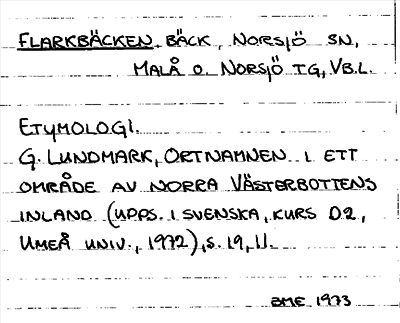 FLARKBÄCKEN, BÄCK, NORSJÖ SN,
MALÅ O. NORSJÖ TG, VB.L.
ETYMOLOGI.
G. LUNDMARK, ORTNAMNEN I ETT
OMRÅDE AV NORRA VÄSTERBOTTENS
INLAND (UPPS. I SVENSKA, KURS D2,
UMEÅ UNIV., 1972), S. 19, 11.
BME 1973